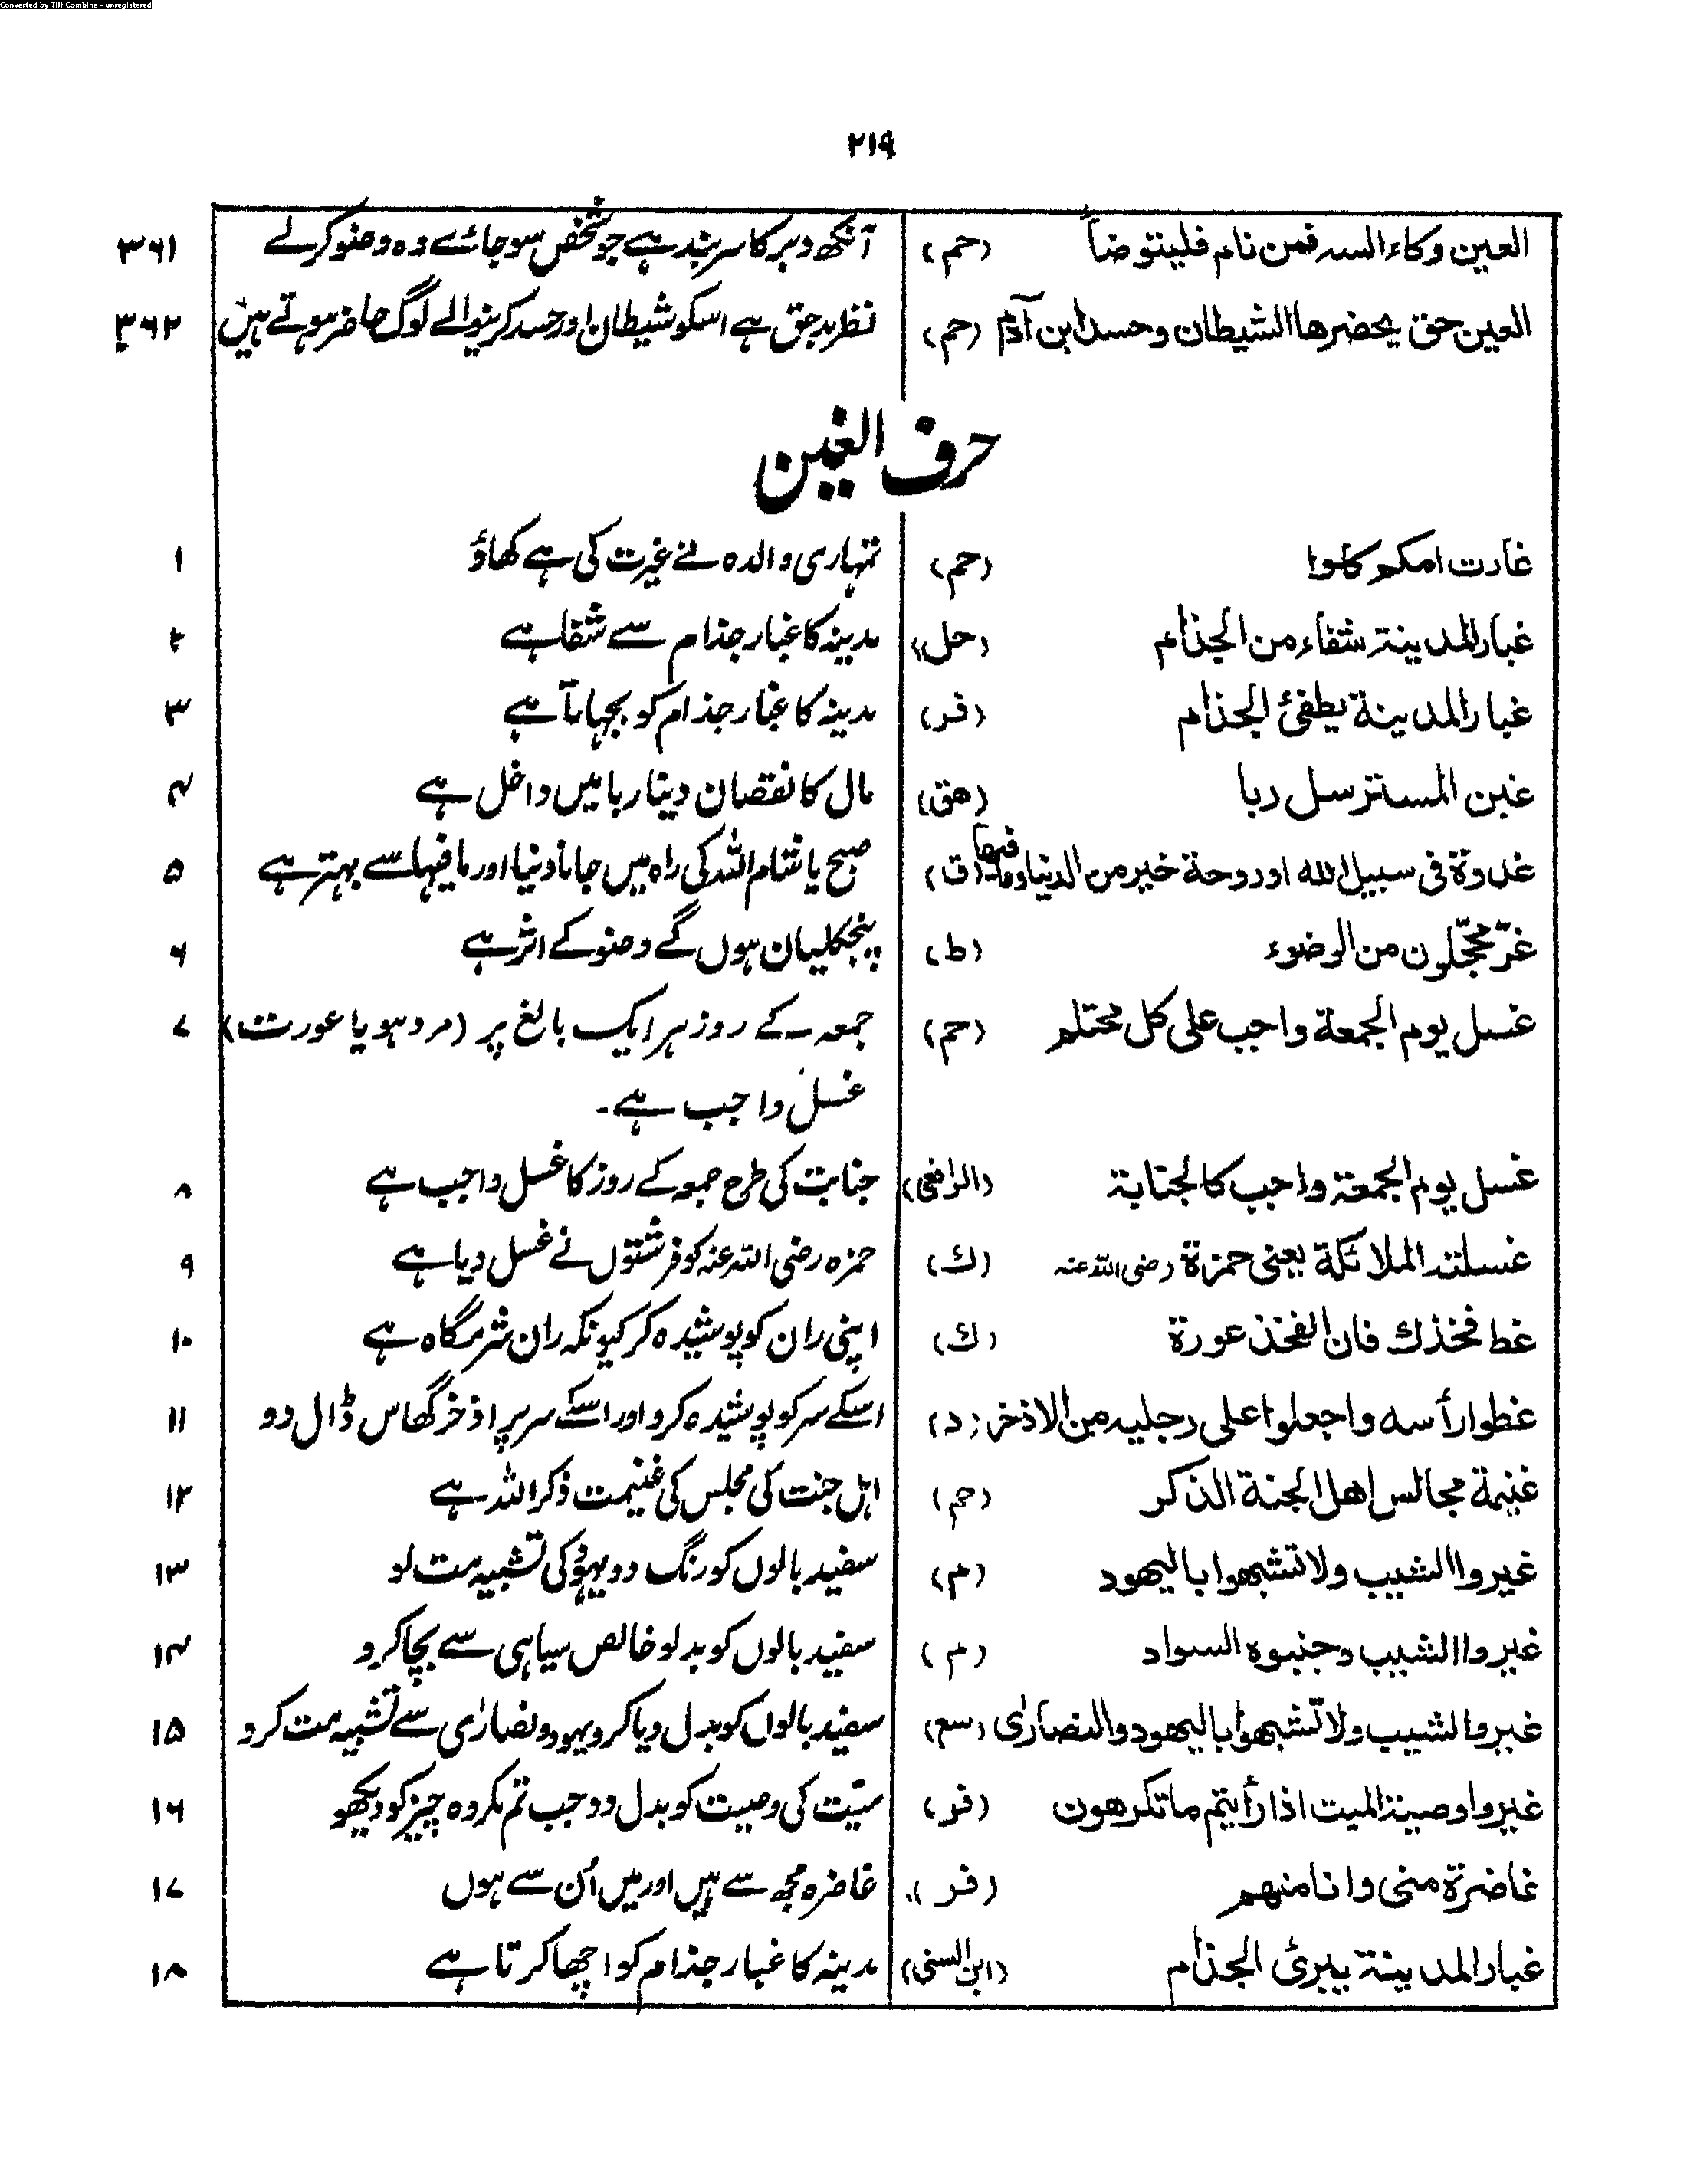 Converted by Tiff Combine - unregistered
۲۱۹
العين وكاء السه فمن نام فليتوضأ (حم) آنکھ دبر کا سربند ہے جو شخص سو جائے وہ وضو کرلے ۳۶۱
العين حق يحضرها الشيطان وحسد ابن آدم (حم) نظربد حق ہے اسکو شیطان اور حسد کرنیوالے لوگ حاضر ہوتے ہیں ۳۶۲
حرف الغین
غارت امكم كلوا (حم) تمہاری والدہ نے غیرت کی ہے کھاؤ ۱
غبار المدينة شفاء من الجذام (حل) مدینہ کا غبار جذام سے شفا ہے ۲
غبار المدينة يطفئ الجذام (فر) مدینہ کا غبار جذام کو بجہاتا ہے ۳
غبن المسترسل ربا (هق) مال کا نقصان دینا ربا میں داخل ہے ۴
غدوة فى سبيل الله اوروحة خير من الدنيا وما فيها (ق) صبح یا شام اللہ کی راہ میں جانا دنیا اور مافیہا سے بہتر ہے ۵
غرّ محجّلون من الوضوء (ط) پنجکلیان ہوں گے وضو کے اثر ہے ۶
غسل يوم الجمعة واجب على كل محتلم (حم) جمعہ کے روز ہر ایک بالغ پر (مرد ہو یا عورت) ۷
غسل واجب ہے۔
غسل يوم الجمعة واجب كالجنابة (الرافعی) جنابت کی طرح جمعہ کے روز کا غسل واجب ہے ۸
غسلته الملائكة يعنى حمزة رضی اللہ عنہ (ك) حمزہ رضی اللہ عنہ کو فرشتوں نے غسل دیا ہے ۹
غط فخذك فان الفخذ عورة (ك) اپنی ران کو پوشیدہ کر کیونکہ ران شرمگاہ ہے ۱۰
غطوا رأسه واجعلوا على رجليه من الاذخر (د) اسکے سر کو پوشیدہ کرو اور اسکے سر پر اذخر گھاس ڈال دو ۱۱
غنيمة مجالس اهل الجنة الذكر (حم) اہل جنت کی مجلس کی غنیمت ذکر اللہ ہے ۱۲
غيروا الشيب ولا تشبهوا باليهود (م) سفید بالوں کو رنگ دو یہود کی تشبیہ مت لو ۱۳
غيروا الشيب وجنبوه السواد (م) سفید بالوں کو بدلو خالص سیاہی سے بچا کرو ۱۴
غيروا الشيب ولا تشبهوا باليهود والنصارى (سع) سفید بالوں کو بدل دیا کرو یہود و نصاریٰ سے تشبیہ مت کرو ۱۵
غيروا وصية الميت اذا رأيتم ما تكرهون (فر) میّت کی وصیت کو بدل دو جب تم مکروہ چیز کو دیکھو ۱۶
غاضرة منى وانا منهم (فر) غاضرہ مجھ سے ہیں اور میں اُن سے ہوں ۱۷
غبار المدينة يبرئ الجذام (ابن السنی) مدینہ کا غبار جذام کو اچھا کرتا ہے ۱۸